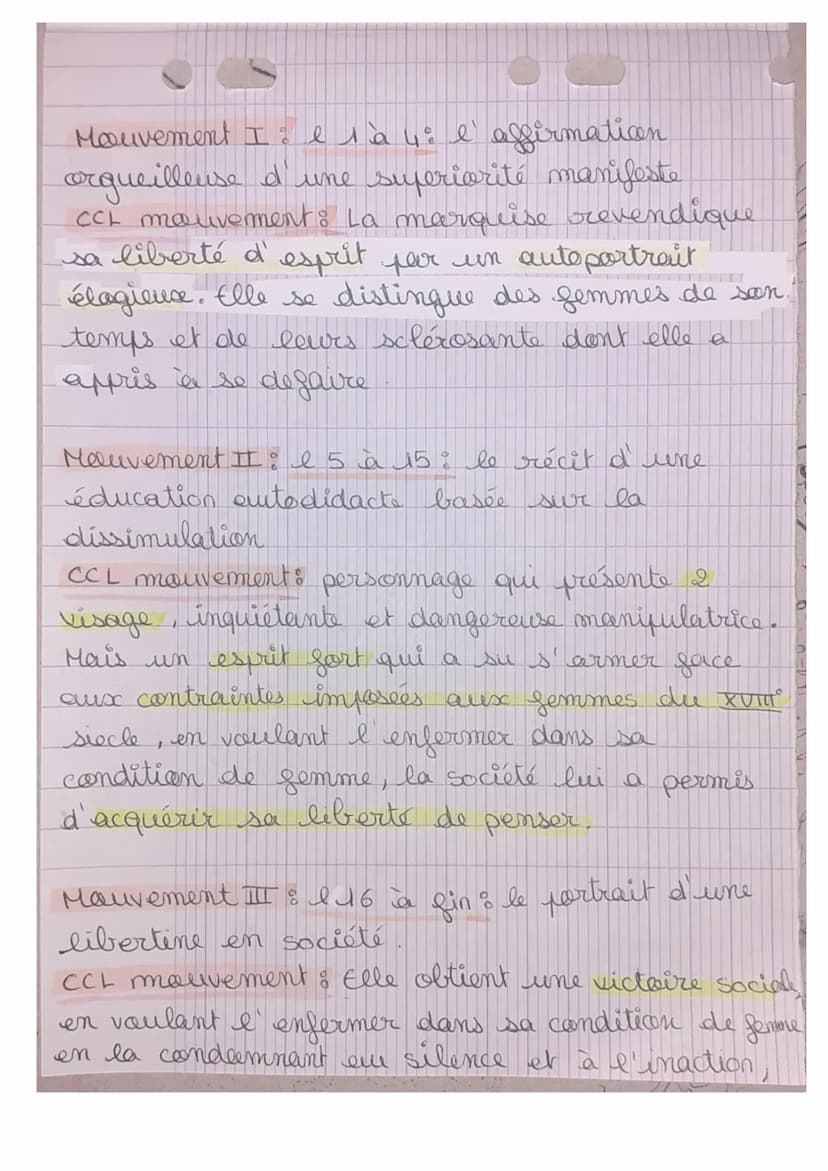 Mouvement I : l 1 à 4 : l'affirmation
orgueilleuse d'une superiorité manifeste
CCL mouvement : La marquise revendique
sa liberté d'esprit par un autoportrait
élogieux. Elle se distingue des femmes de son
temps et de leurs sclérosante dont elle a
appris à se defaire.
Mouvement II : l 5 à 15 : le récit d'une
éducation autodidacte basée sur la
dissimulation
CCL mouvement : personnage qui présente 2
visage, inquiétante et dangereuse manipulatrice.
Mais un esprit fort qui a su s'armer face
aux contraintes imposées aux femmes du XVIII°
siecle, en voulant l'enfermer dans sa
condition de femme, la société lui a permis
d'acquérir sa liberté de penser.
Mouvement III : l 16 à fin : le portrait d'une
libertine en société.
CCL mouvement : Elle obtient une victoire sociale,
en voulant l'enfermer dans sa condition de femme
en la condamnant au silence et à l'inaction,